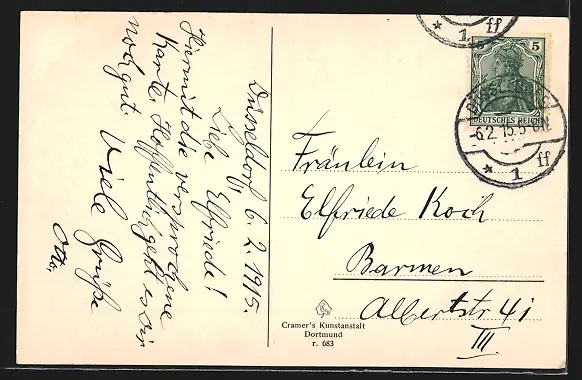 Düsseldorf 6.2.1915.
Liebe Elfriede!
Hiermit die versprochene
Karte. Hoffentlich geht es Dir
noch gut. Viele Grüße
Otto.
5
DEUTSCHES REICH
6.2.15.5
* 1 ff
* 1 ff
Fräulein
Elfriede Koch
Barmen
Albertstr 41
III
Cramer's Kunstanstalt
Dortmund
r. 683